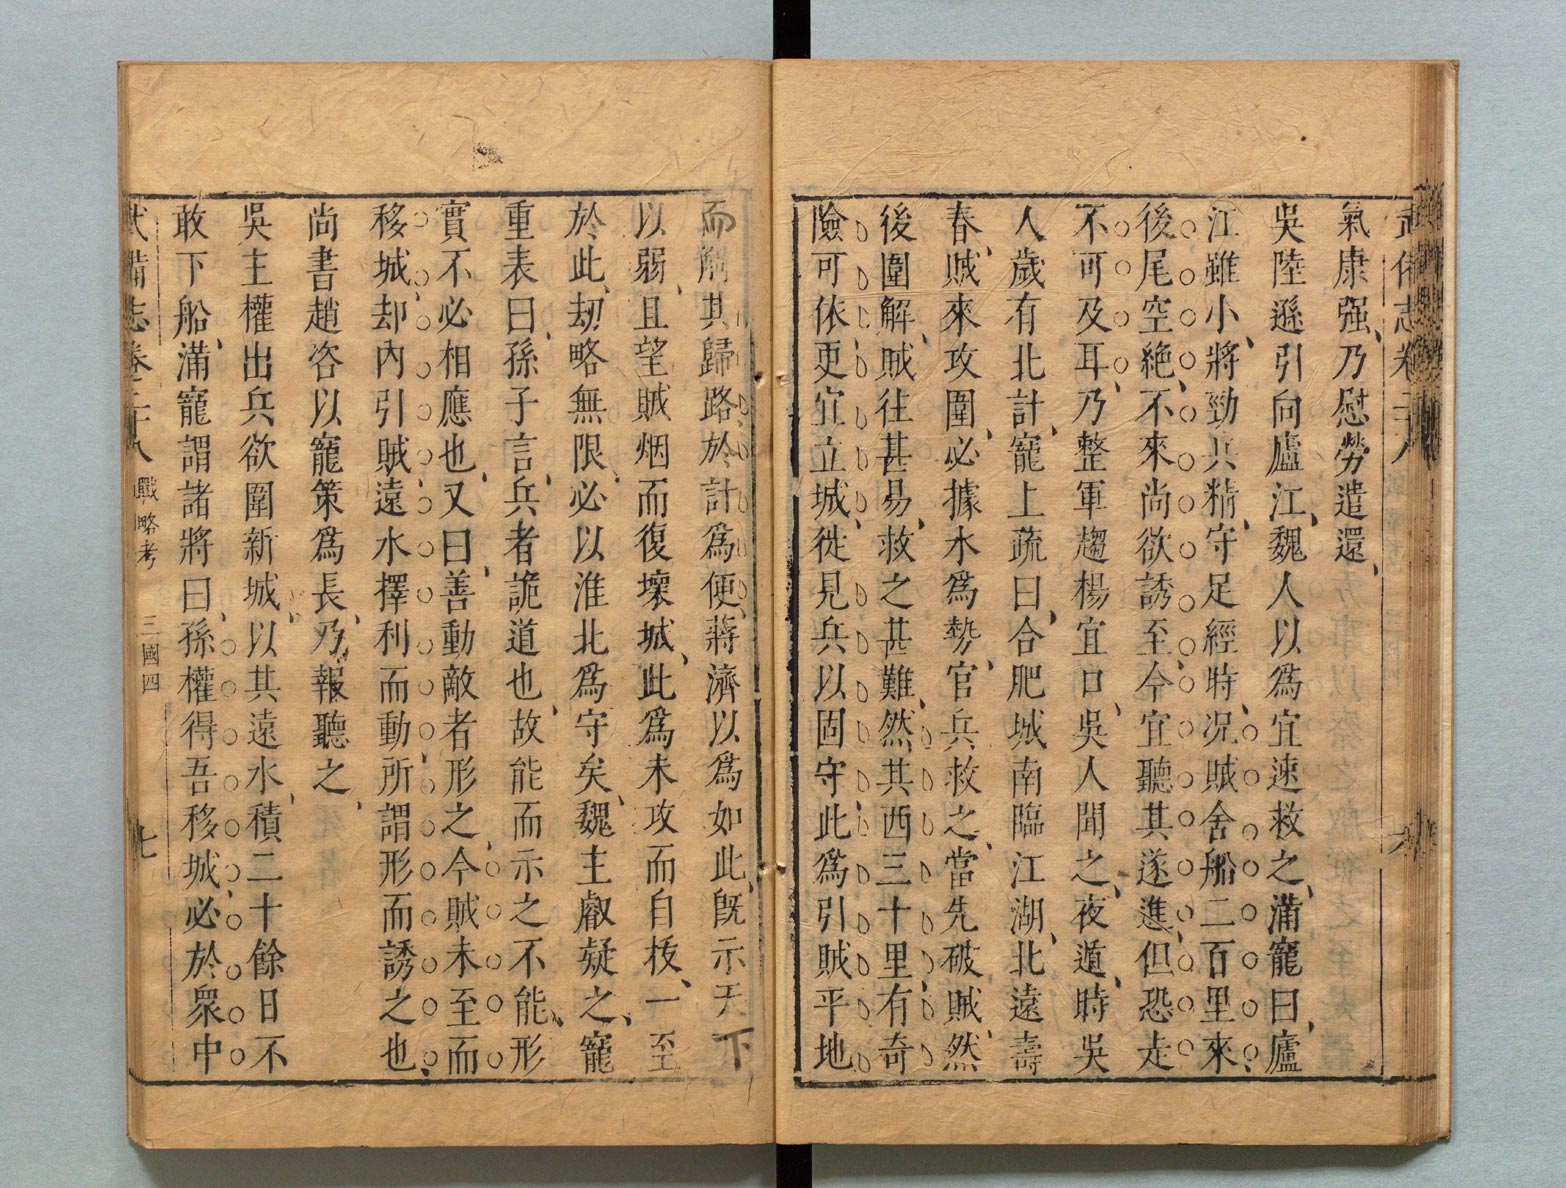 武備志卷二十八
六
氣康强、乃慰勞遣還、
吳陸遜引向廬江、魏人以爲宜速救之、滿寵曰、廬
江雖小、將勁兵精、守足經時、况賊舍船二百里來、
後尾空絶、不來尚欲誘至、今宜聽其遂進、但恐走
不可及耳、乃整軍趨楊宜口、吳人聞之、夜遁、時吳
人歲有北計、寵上疏曰、合肥城南臨江湖、北遠壽
春、賊來攻圍、必據水爲勢、官兵救之、當先破賊、然
後圍解、賊往甚易、救之甚難、然其西三十里、有奇
險可依、更宜立城、徙見兵以固守、此爲引賊平地
而掎其歸路、於計爲便、蔣濟以爲如此、旣示天下
以弱、且望賊烟而復壞城、此爲未攻而自拔、一至
於此、刼略無限、必以淮北爲守矣、魏主叡疑之、寵
重表曰、孫子言、兵者詭道也、故能而示之不能、形
實不必相應也、又曰、善動敵者形之、今賊未至而
移城却內引賊、遠水擇利而動、所謂形而誘之也、
尚書趙咨以寵策爲長、乃報聽之、
吳主權出兵欲圍新城、以其遠水、積二十餘日不
敢下船、滿寵謂諸將曰、孫權得吾移城、必於衆中
武備志卷二十八 戰略考 三國四
七